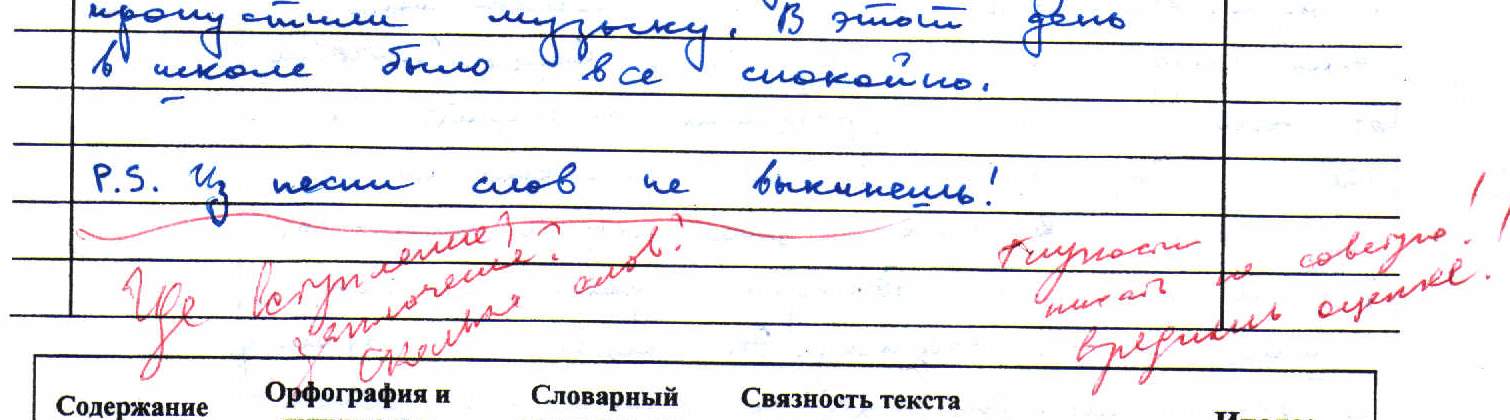 пропустили музыку. В этот день
в школе было все спокойно.
P.S. Из песни слов не выкинешь!
Где вступление?
Заключение?
Сколько слов?
Глупости
писать не советую!
вредишь оценке!
Содержание Орфография и Словарный Связность текста